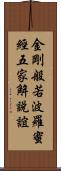 金剛般若波羅蜜
經五家解説誼